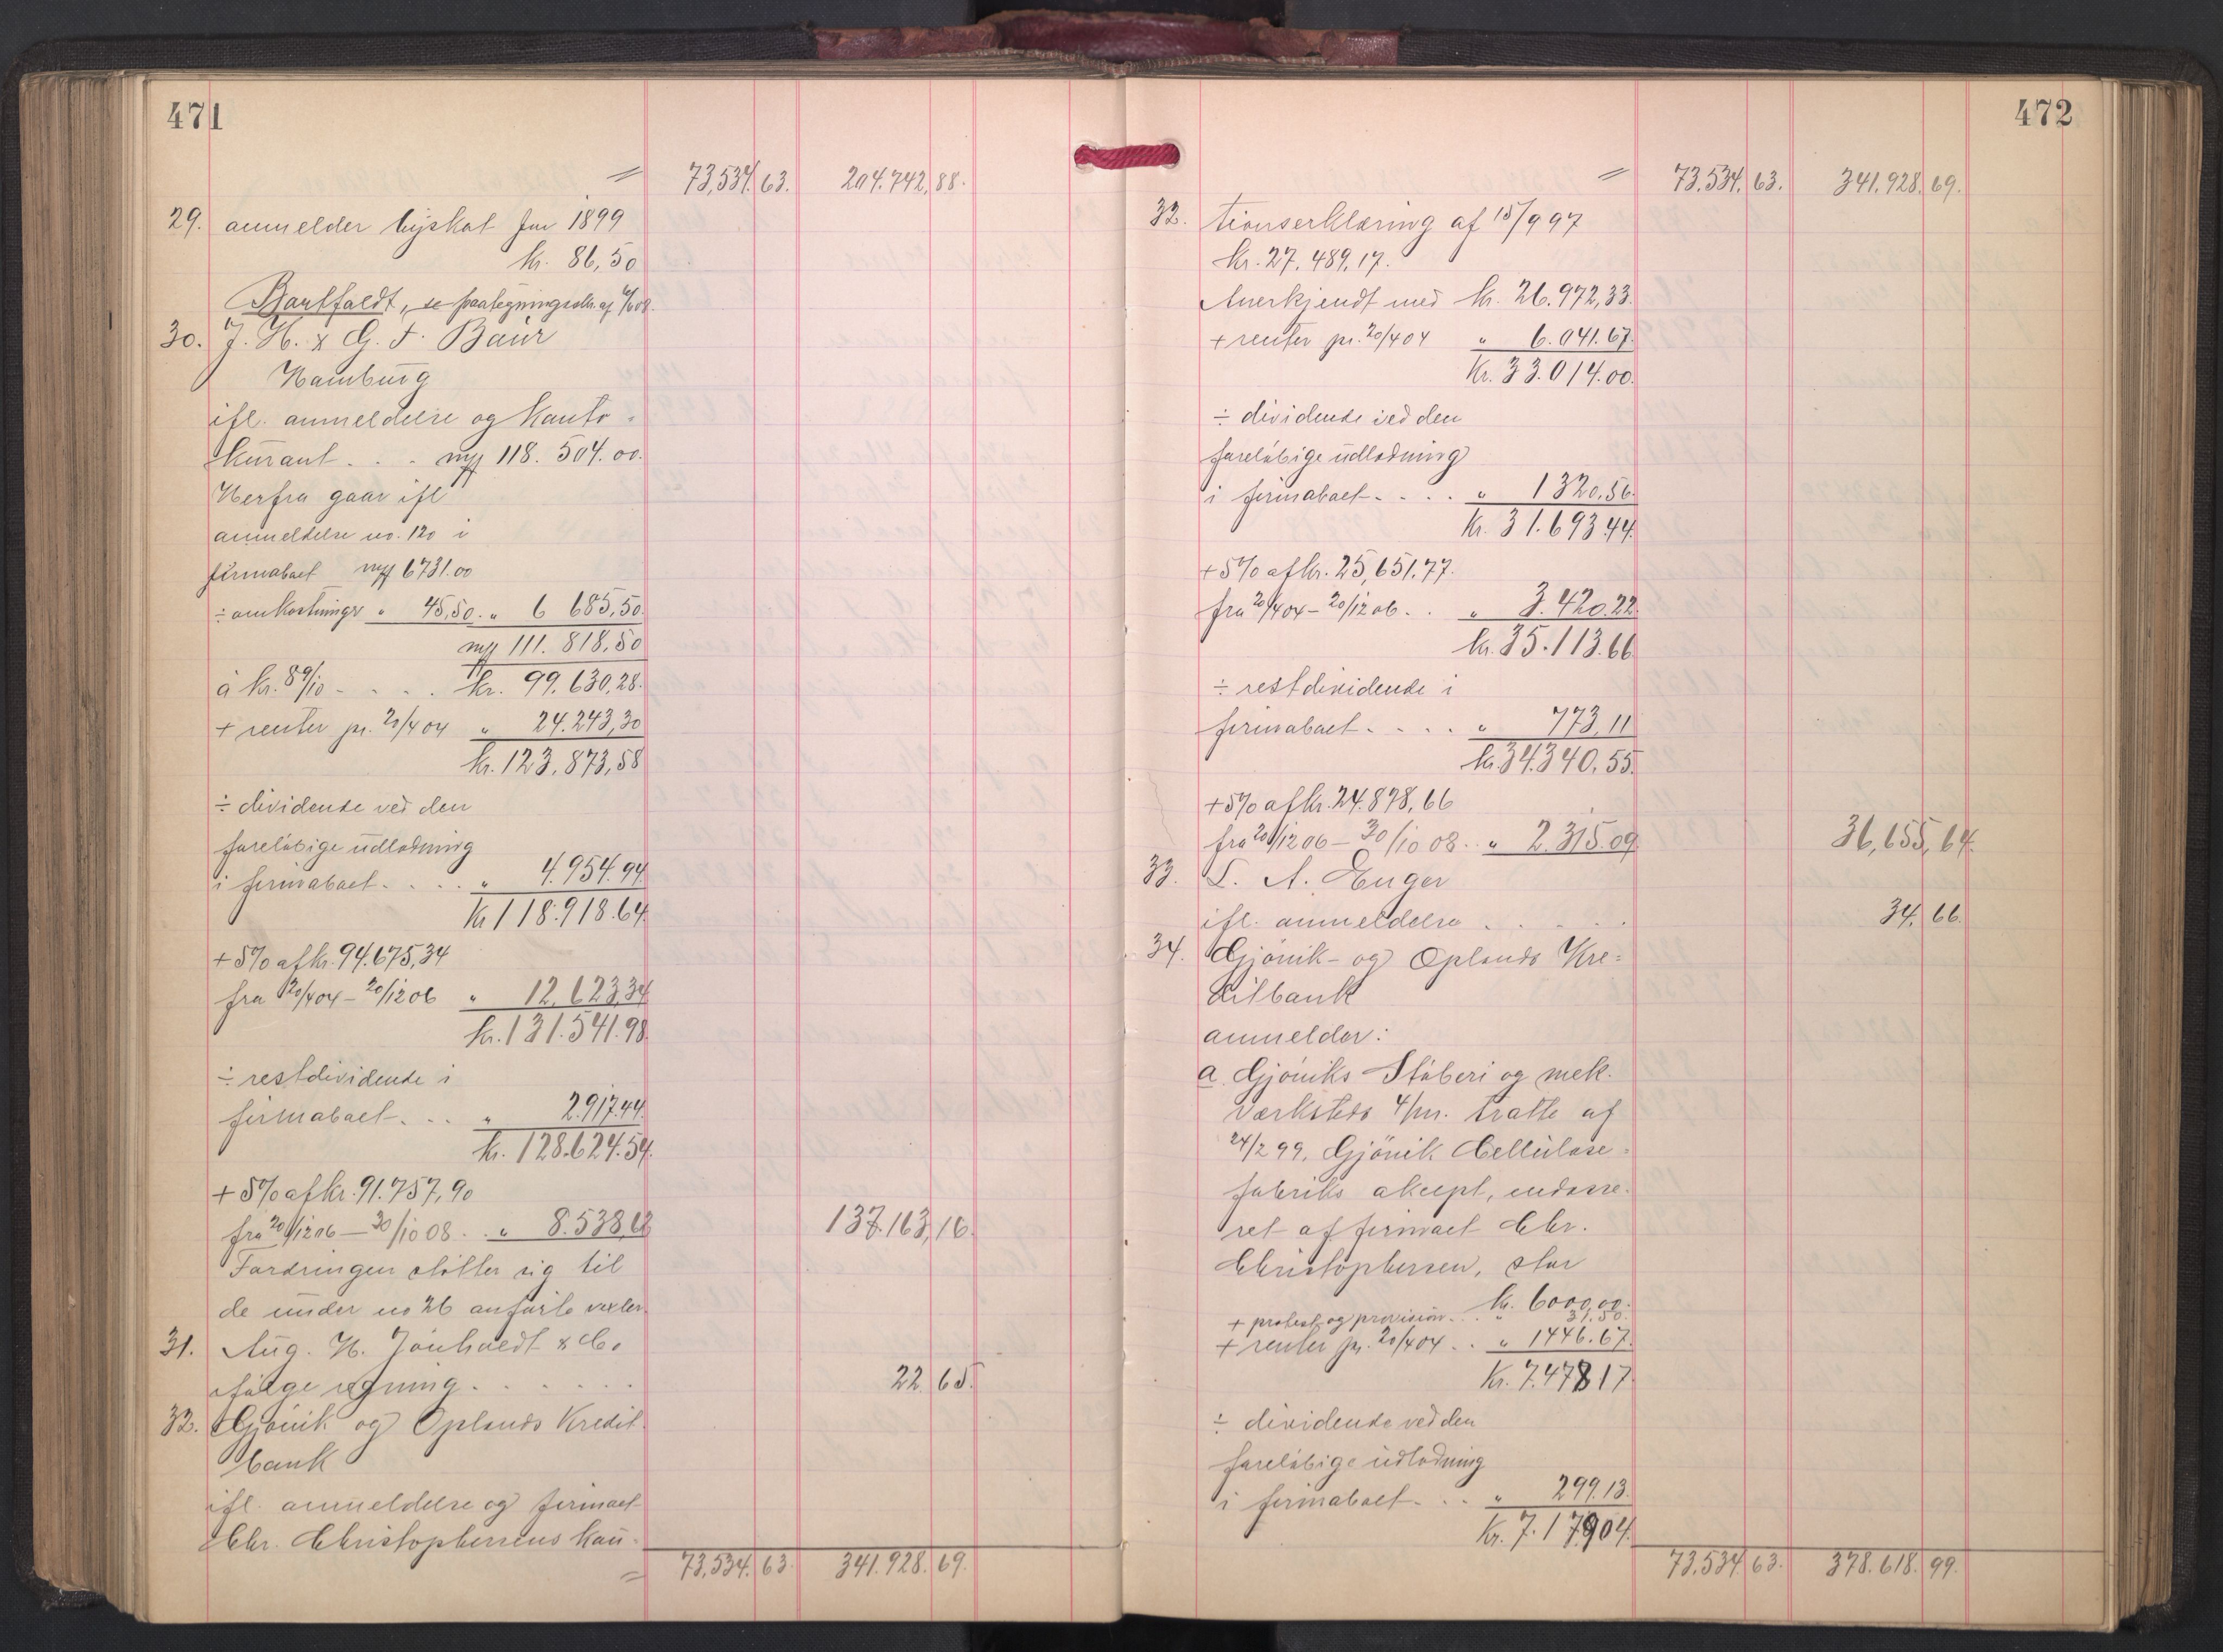 471
= 73,534.63. 204.742,88.
29. anmelder byskat for 1899
kr. 86,50
Bortfaldt, se paategningsdok. af
30. J. H. & G. F. Baur
Hamburg
ifl. anmeldelse og Konto-
kurant . . . 118.504.00.
Herfra gaar ifl
anmeldelse no. 120 i
firmaboet 6731.00
÷ omkostninger " 45,50. " 6 685,50.
111.818,50
à kr. 89/10 - . . . kr. 99.630,28.
+ renter pr. 20/4 04 " 24.243,30
kr. 123.873,58
÷ dividende ved den
foreløbige udlodning
i firmaboet. . . . " 4.954.94.
Kr 118.918.64.
+ 5% af kr. 94.675,34
fra 20/4 04 - 20/12 06 " 12.623,34
kr. 131.541.98.
÷ restdividende i
firmaboet. . . " 2.917.44.
kr. 128.624.54.
+ 5% af kr. 91.757,90
fra 20/12 06 - 30/10 08 . . " 8.538,62 137.163,16.
Fordringen støtter sig til
de under no 26 anførte vexler.
31. Aug. H. & Co.
ifølge regning . . . . . . 22.65.
32. Gjøvik og Oplands Kredit-
bank
ifl. anmeldelse og firmaet
Chr. Christophersens kau-
= 73,534.63. 341.928.69.
472
= 73.534.63. 341.928.69.
32. tionserklæring af 15/9 97
kr. 27.489,17.
Anerkjendt med kr. 26.972,33.
+ renter pr. 20/4 04 " 6.041.67.
Kr. 33.014.00.
÷ dividende ved den
foreløbige udlodning
i firmaboet. . . . " 1320,56.
Kr. 31.693.44.
+ 5% af kr. 25,651.77.
fra 20/4 04 - 20/12 06 . . " 3.420.22.
kr. 35.113.66
÷ restdividende i
firmaboet. . . . " 773,11
kr. 34.340,55.
+ 5% af kr. 24.878,66
fra 20/12 06 - 30/10 08 . . " 2.315.09. 36,655,64.
33. L. A. Enger
ifl. anmeldelse . . . . . 34.66.
34. Gjøvik- og Oplands Kre-
ditbank
anmelder:
a. Gjøviks Støberi og mek.
Værksteds 4/m. tratte af
24/2 99, Gjøvik Cellulose-
fabriks akcept, endosse-
ret af firmaet Chr.
Christophersen, stor
kr. 6000,00.
+ protest og provision . . . " 31,50.
+ renter pr. 20/4 04 . . " 1446.67.
Kr. 7.478 17.
÷ dividende ved den
foreløbige udlodning
i firmaboet. . . " 299.13.
Kr. 7.179 04.
73.534.63. 378.618.99.